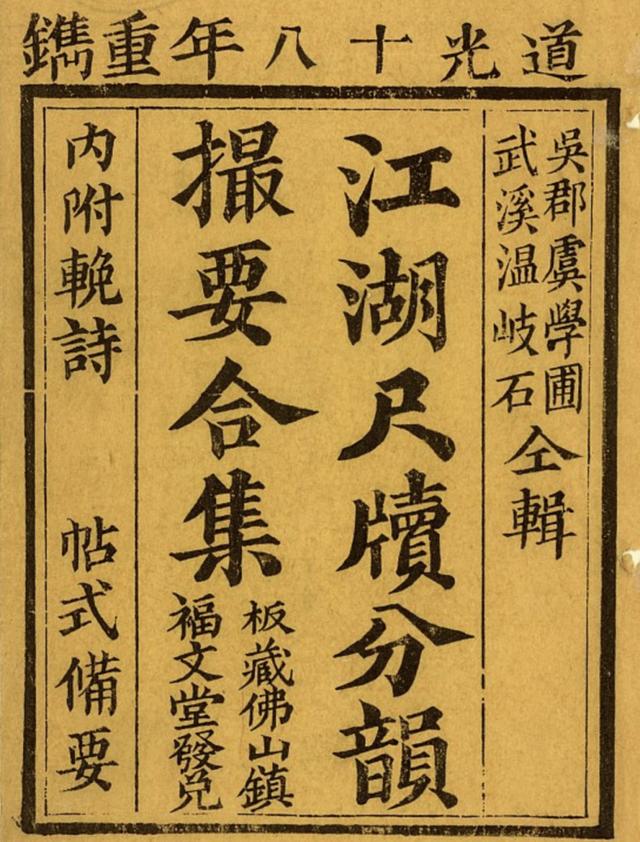 道光十八年重鐫
吳郡虞學圃
武溪温岐石
仝輯
江湖尺牘分韻
撮要合集
板藏佛山鎮
福文堂發兌
內附輓詩 帖式備要